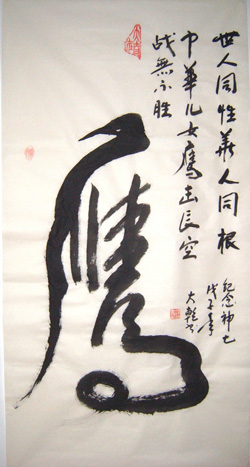 世人同性華人同根
中華儿女鹰击長空
战無不胜
鹰
纪念神七
戊子年
大乾书